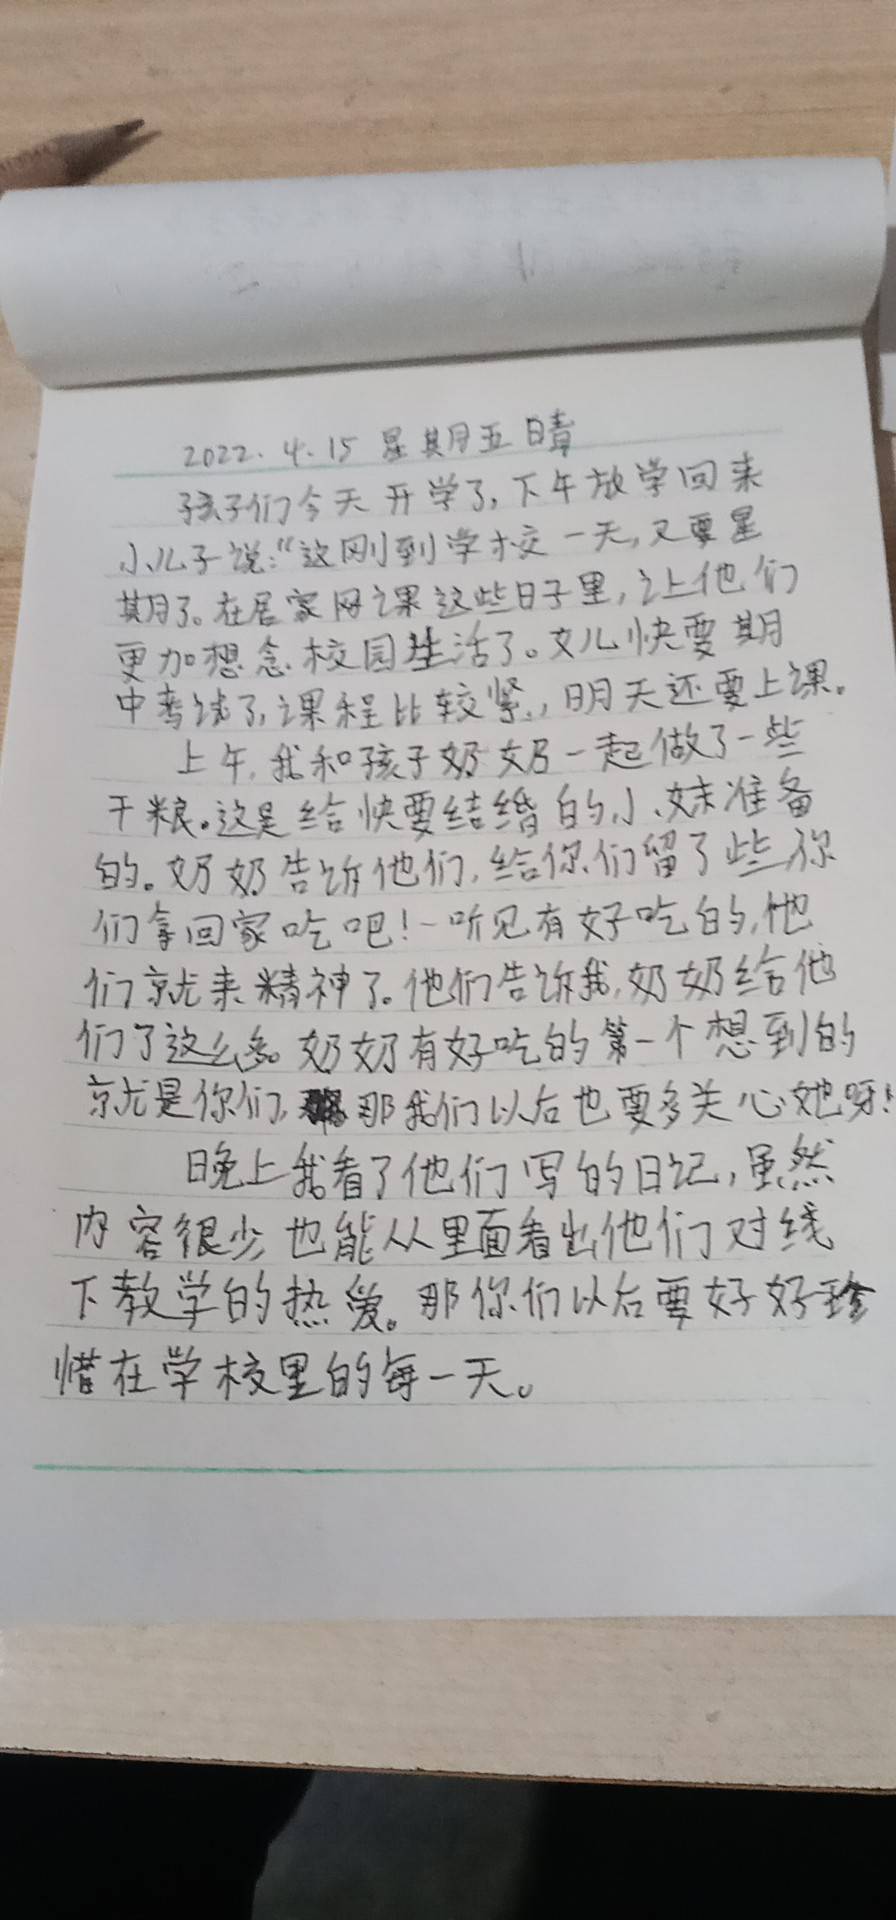 2022.4.15 星期五 晴
孩子们今天开学了,下午放学回来
小儿子说:“这刚到学校一天,又要星
期了。在居家网课这些日子里,让他们
更加想念校园生活了。女儿快要期
中考试了,课程比较紧,明天还要上课。
上午,我和孩子奶奶一起做了一些
干粮。这是给快要结婚的小妹准备
的。奶奶告诉他们,给你们留了些你
们拿回家吃吧!一听见有好吃的,他
们就来精神了。他们告诉我,奶奶给他
们了这么多。奶奶有好吃的第一个想到的
就是你们,那我们以后也要多关心她呀!
晚上我看了他们写的日记,虽然
内容很少,也能从里面看出他们对线
下教学的热爱。那你们以后要好好珍
惜在学校里的每一天。